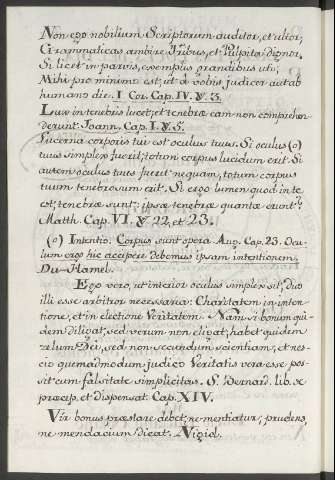 Non ego nobilium Scriptorum auditor, et ultor,
Grammaticas ambire Tribus, et Pulpita dignor.
Si licet in parvis, exemplis grandibus uti,
Mihi pro minimo est, ut à vobis judicer aut ab
humano die. I Cor. Cap. IV. ℣. 3.
Lux in tenebris lucet, et tenebræ eam non comprehen-
derunt. Joann. Cap. I. ℣. 5.
Lucerna corporis tui est oculus tuus. Si oculus (o)
tuus simplex fuerit, totum corpus lucidum erit. Si
autem oculus tuus fuerit nequam, totum corpus
tuum tenebrosum erit. Si ergo lumen quod in te
est, tenebræ sunt: ipsæ tenebræ quantæ erunt?
Matth. Cap. VI. ℣. 22, et 23.
(o) Intentio. Corpus sunt opera Aug. Cap. 23. Ocu-
lum ergo hic accipere debemus ipsam intentionem.
Du-Hamel.
Ego vero, ut interior oculus simplex sit, duo
illi esse arbitror necessaria: Charitatem in inten-
tione, et in electione Veritatem. Nam si bonum qui-
dem diligat, sed verum non eligat, habet quidem
zelum Dei, sed non secundum scientiam, et nes-
cio quemadmodum judicio Veritatis vera esse pos-
sit cum falsitate simplicitas. S. Bernard. lib. de
præcep. et dispensat. Cap. XIV.
Vir bonus præstare debet, ne mentiatur, prudens,
ne mendacium dicat. Nigid.